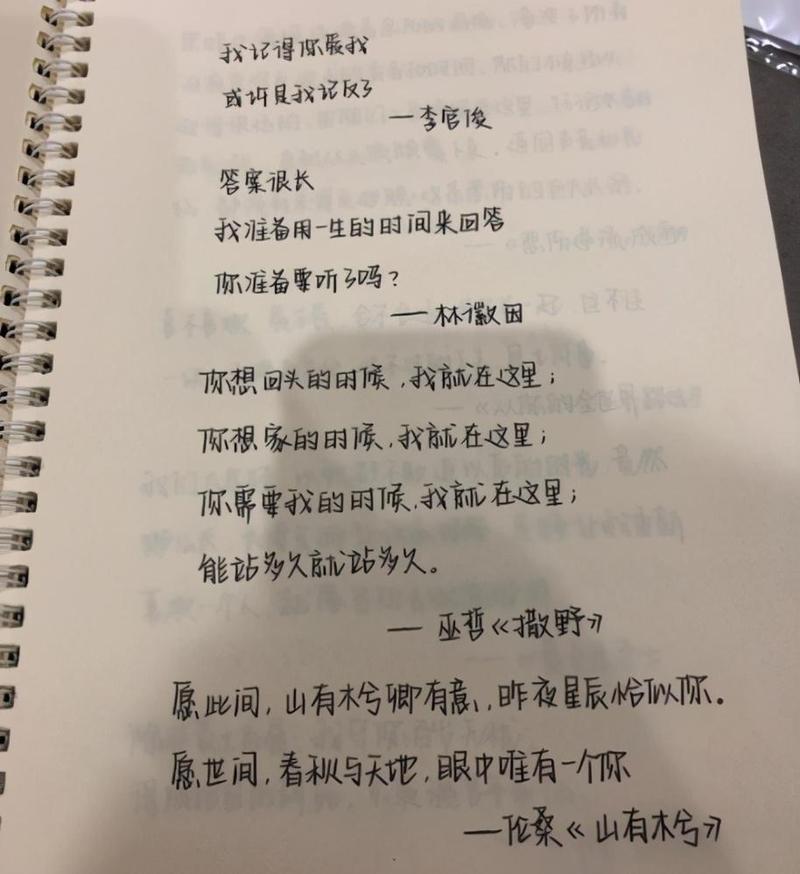 我记得你爱我
或许是我记反了
—李宫俊
答案很长
我准备用一生的时间来回答
你准备要听了吗？
—林徽因
你想回头的时候，我就在这里；
你想家的时候，我就在这里；
你需要我的时候，我就在这里；
能站多久就站多久。
— 巫哲《撒野》
愿此间，山有木兮卿有意，昨夜星辰恰似你。
愿世间，春秋与天地，眼中唯有一个你
—伦桑《山有木兮》